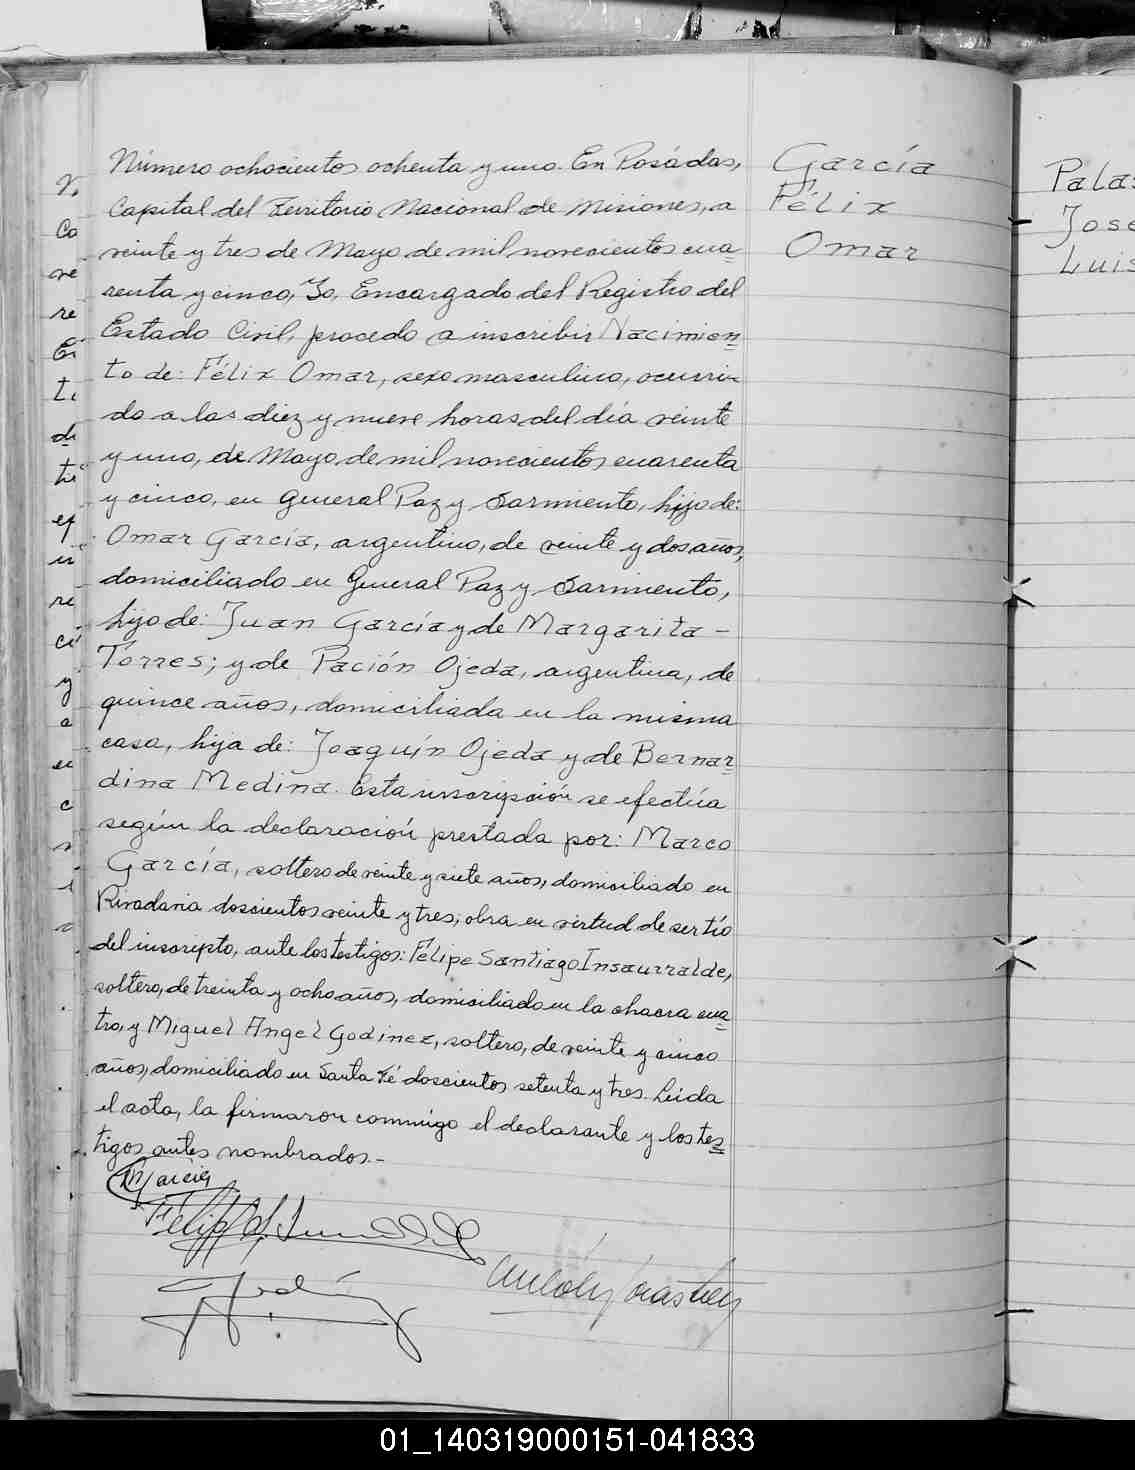 Número ochocientos ochenta y uno. En Posadas,
Capital del Territorio Nacional de Misiones, a
veinte y tres de Mayo de mil novecientos cua
renta y cinco, Yo, Encargado del Registro del
Estado Civil, procedo a inscribir Nacimien
to de: Félix Omar, sexo masculino, ocurri-
do a las diez y nueve horas del día veinte
y uno, de Mayo de mil novecientos cuarenta
y cinco, en General Paz y Sarmiento, hijo de:
Omar García, argentino, de veinte y dos años,
domiciliado en General Paz y Sarmiento,
hijo de: Juan García y de Margarita -
Torres; y de Pación Ojeda, argentina, de
quince años, domiciliada en la misma
casa, hija de: Joaquín Ojeda y de Bernar
dina Medina. Esta inscripción se efectúa
según la declaración prestada por: Marco
García, soltero de veinte y siete años, domiciliado en
Rivadavia doscientos veinte y tres, obra en virtud de ser tío
del inscripto, ante los testigos: Felipe Santiago Insaurralde,
soltero, de treinta y ocho años, domiciliado en la chacra cua
tro, y Miguel Angel Godinez, soltero, de veinte y cinco
años, domiciliado en Santa Fé doscientos setenta y tres. Leida
el acta, la firmaron conmigo el declarante y los tes
tigos antes nombrados.-
García
Félix
Omar
M García
Pala
José
Luis
01_140319000151-041833